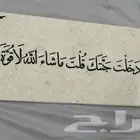 دَخَلْتَ جَنَّتَكَ قُلْتَ مَا شَاءَ اللَّهُ لَا قُوَّةَ